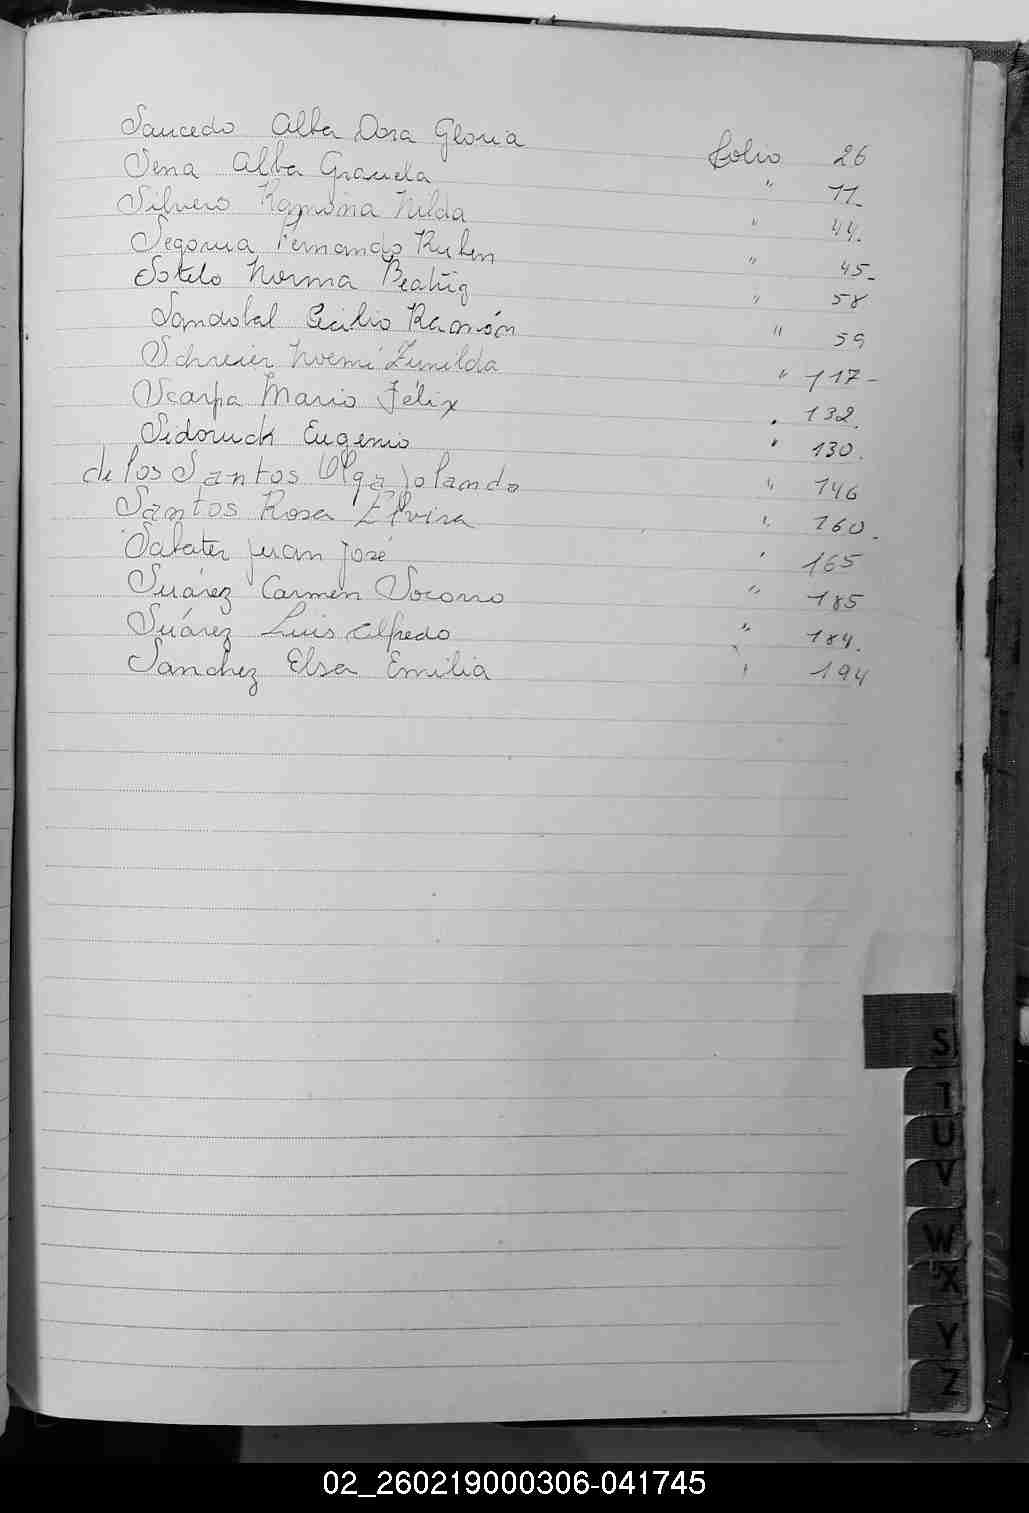 Saucedo Alba Dora Gloria folio 26
Sena Alba Graciela " 11
Silvero Ramona Nilda " 44.
Segovia Fernando Ruben " 45-
Sotelo Norma Beatriz " 58
Sandobal Cecilio Ramón " 59
Schreier Noemi Zunilda " 117-
Scarpa Mario Félix " 132.
Sidoruck Eugenio " 130.
de los Santos Olga Yolanda " 146
Santos Rosa Elvira " 160.
Sabater Juan José " 165
Suárez Carmen Socorro " 185
Suárez Luis Alfredo " 184.
Sanchez Elsa Emilia " 194
S
T
U
V
W
X
Y
Z
02_260219000306-041745